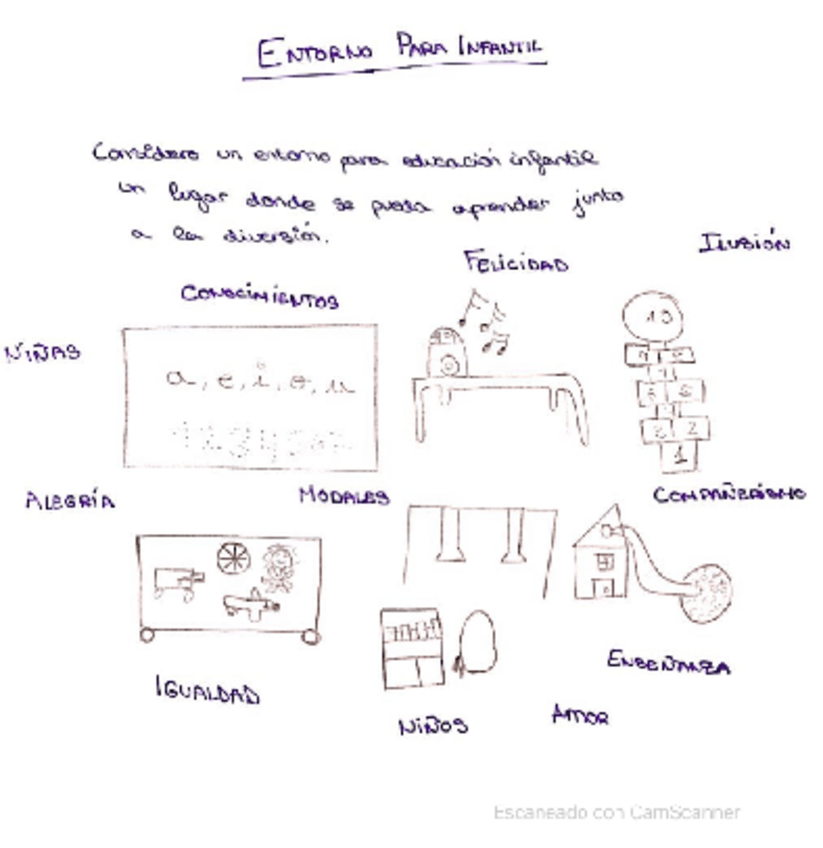 ENTORNO PARA INFANTIL
Considero un entorno para educación infantil
un lugar donde se pueda aprender junto
a la diversión.
ILUSIÓN
FELICIDAD
CONOCIMIENTOS
NIÑAS
10
a, e, i, o, u
1
2
ALEGRÍA
MODALES
COMPAÑERISMO
ENSEÑANZA
IGUALDAD
AMOR
NIÑOS
Escaneado con CamScanner